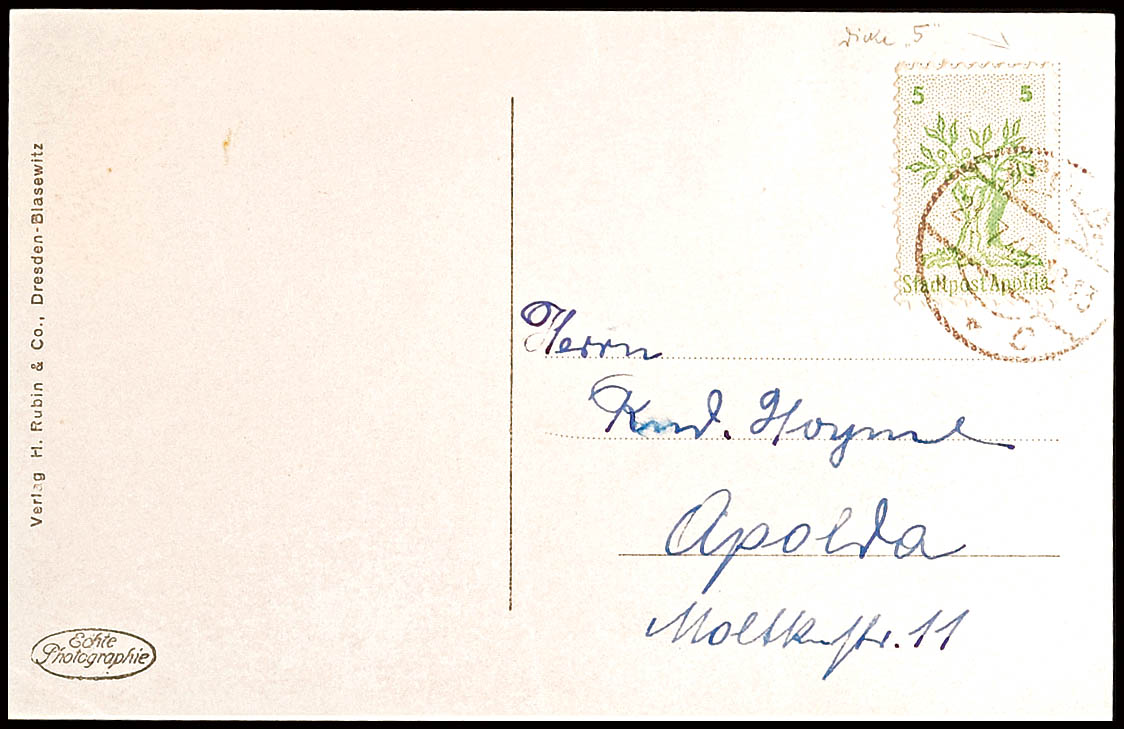 Dicke "5"
5 5
Stadtpost Apolda
Herrn
Knd. Hoyme
Apolda
Moltkestr. 11
Verlag H. Rubin & Co., Dresden-Blasewitz
Echte
Photographie